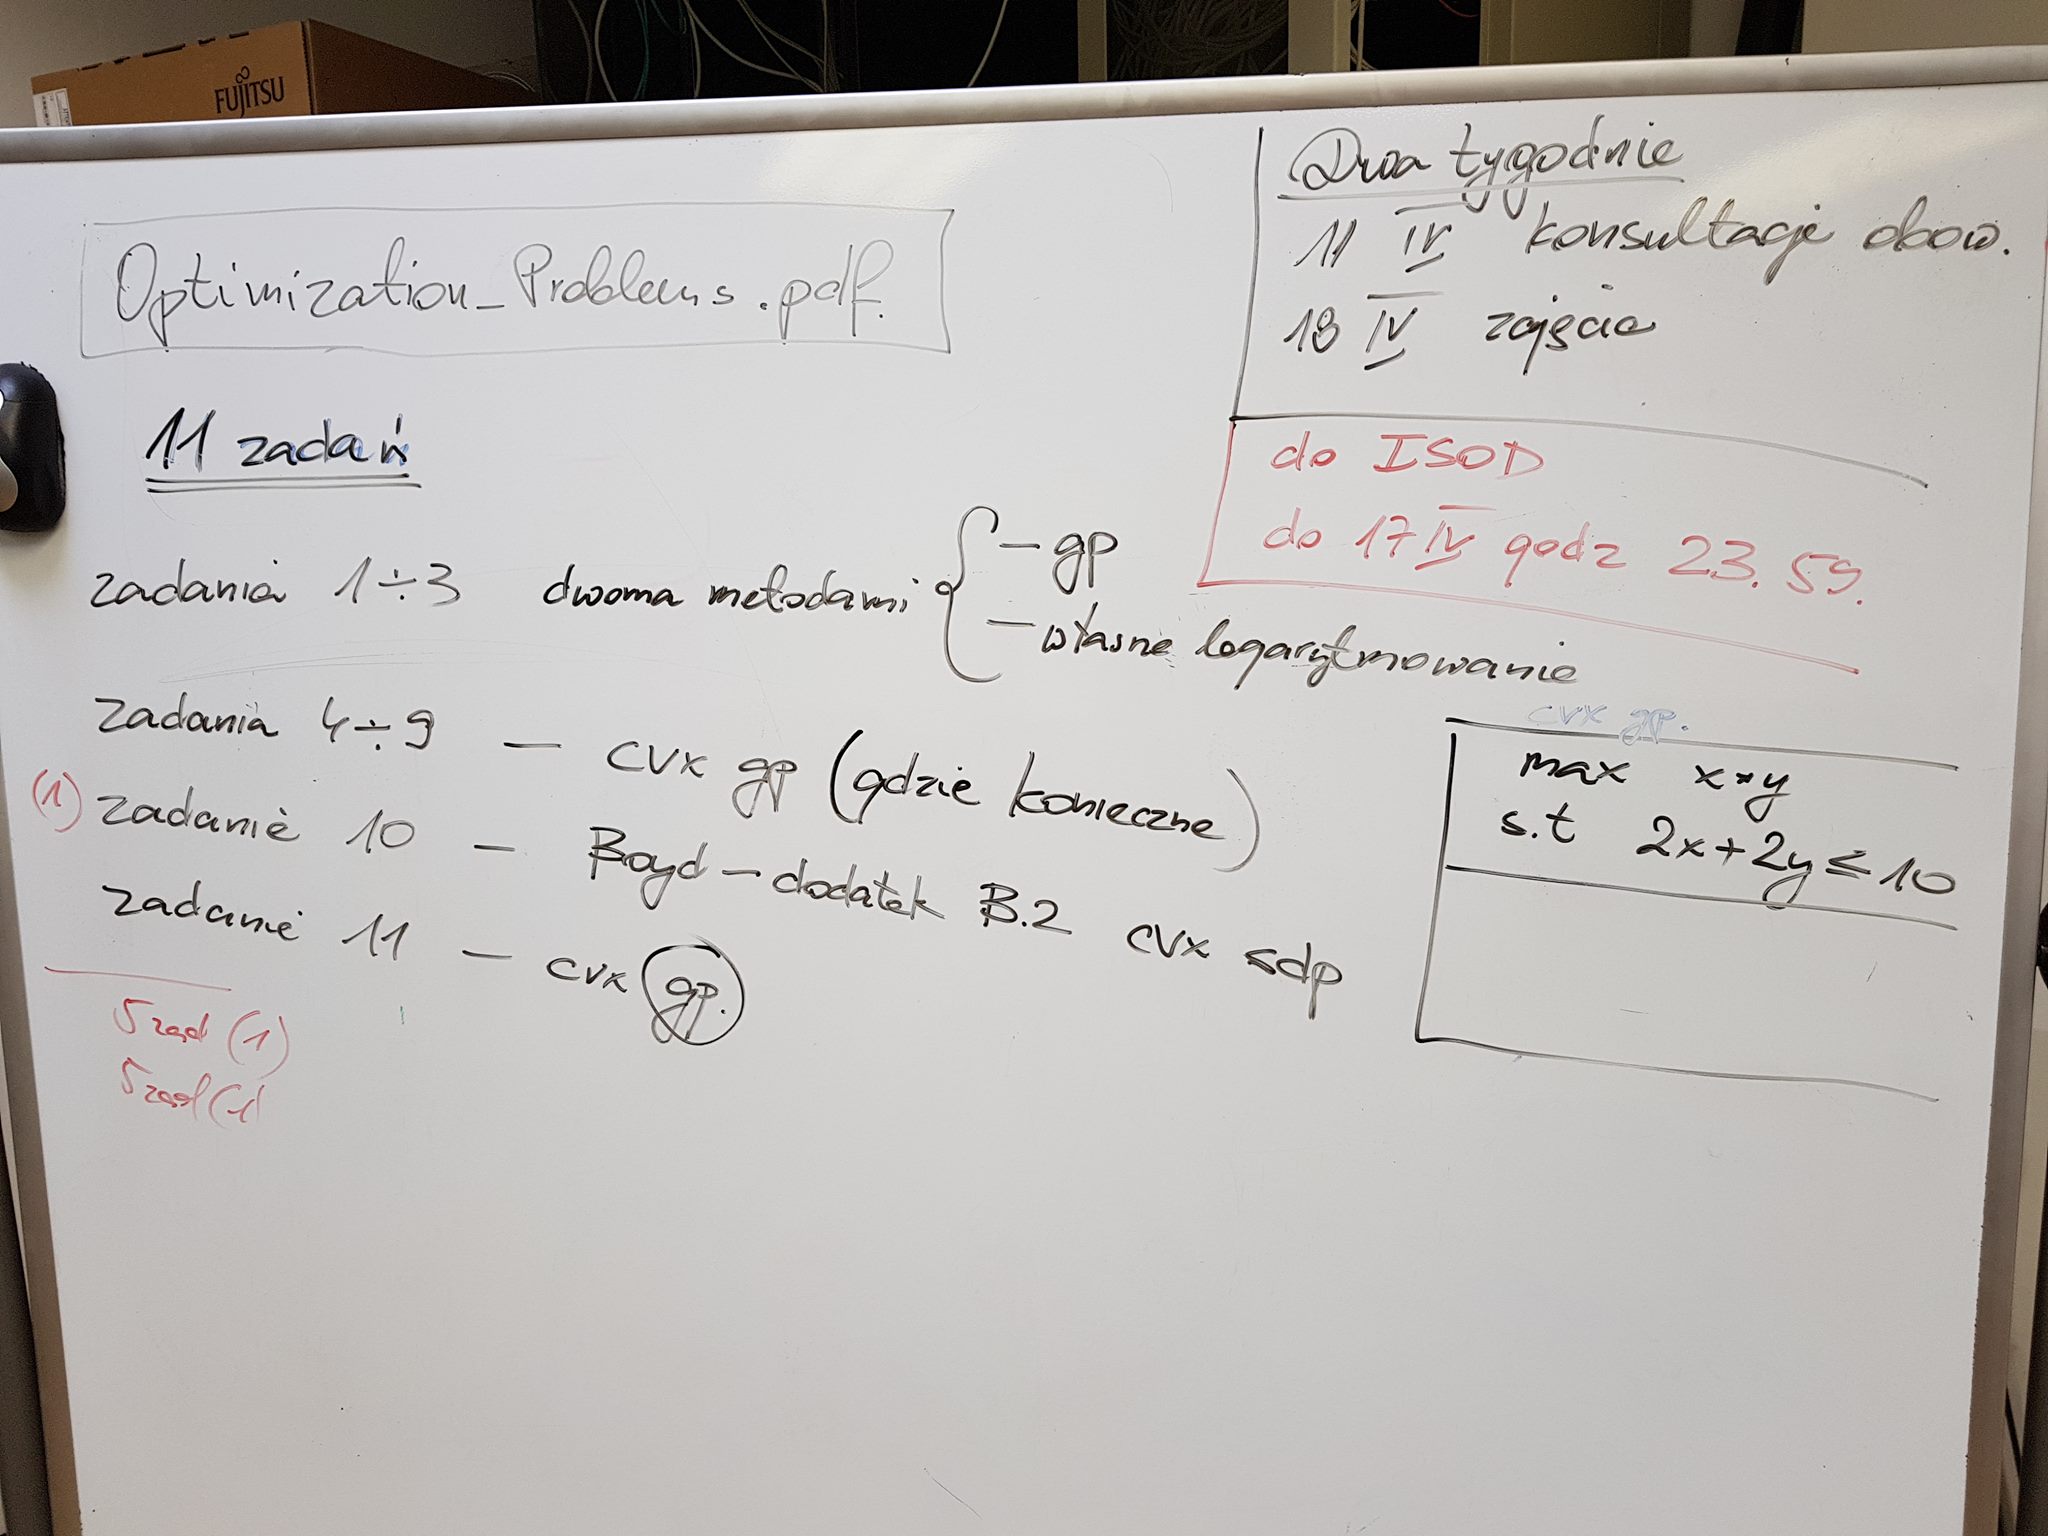 FUJITSU
Optimization_Problems.pdf.
11 zadań
zadania 1÷3 dwoma metodami
- gp
- własne logarytmowanie
zadania 4÷9 - cvx gp (gdzie konieczne)
(1) zadanie 10 - Boyd - dodatek B.2 cvx sdp
zadanie 11 - cvx gp.
5 zad (1)
5 zad (1)
Dwa tygodnie
11 IV konsultacje obow.
18 IV zajęcia
do ISOD
do 17 IV godz 23.59.
cvx gp.
max x*y
s.t 2x+2y≤10